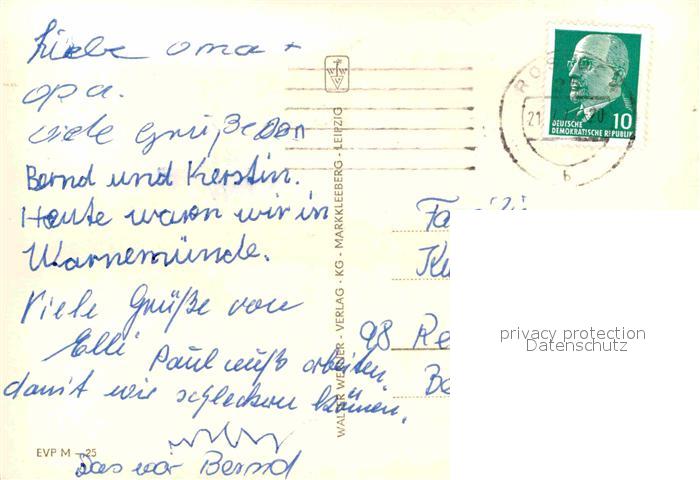 Liebe oma +
opa.
viele Grüße von
Bernd und Kerstin.
Heute waren wir in
Warnemünde.
Viele Grüße von
Elli Paul muß arbeiten,
damit wir schleckern können.
Das war Bernd
EVP M - 25
WALTER WERNER - VERLAG · KG · MARKKLEEBERG - LEIPZIG
DEUTSCHE
DEMOKRATISCHE REPUBLIK
10
ROS
21.
b
Fa
Ku
98 Re
Be
privacy protection
Datenschutz